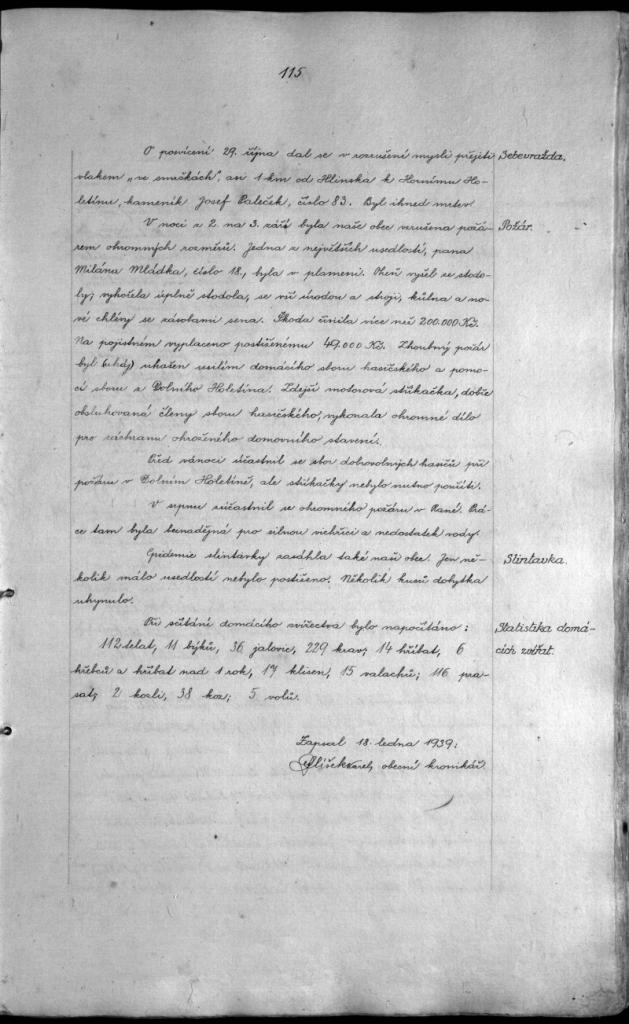 115
O posvícení 29. října dal se v rozrušení mysli přejeti
Sebevražda.
vlakem „ve smrčkách", asi 1 km od Hlinska k Hornímu Ho-
letínu, kameník Josef Paleček, číslo 83. Byl ihned mrtev.
V noci z 2. na 3. září byla naše obec vzrušena požá-
Požár.
rem ohromných rozměrů. Jedna z největších usedlostí, pana
Milána Mládka, číslo 18., byla v plameni. Oheň vyšel ze stodo-
ly; vyhořela úplně stodola, se vší úrodou a stroji, kůlna a no-
vé chlévy se zásobami sena. Škoda činila více než 200.000 Kč.
Na pojistném vyplaceno postiženému 49.000 Kč. Zhoubný požár
byl uhašen úsilím domácího sboru hasičského a pomo-
cí sboru z Dolního Holetína. Zdejší motorová stříkačka, dobře
obsluhovaná členy sboru hasičského, vykonala ohromné dílo
pro záchranu ohroženého domovního stavení.
Před vánoci účastnil se sbor dobrovolných hasičů při
požáru v Dolním Holetíně, ale stříkačky nebylo nutno použíti.
V srpnu súčastnil se ohromného požáru v Rané. Prá-
ce tam byla beznadějná pro silnou vichřici a nedostatek vody.
Epidemie slintavky zasáhla také naši obec. Jen ně-
Slintavka.
kolik málo usedlostí nebylo postiženo. Několik kusů dobytka
uhynulo.
Při sčítání domácího zvířectva bylo napočítáno:
Statistika domá-
112 telat, 11 býků, 36 jalovic, 229 krav, 14 hříbat, 6
cích zvířat.
hřebců a hříbat nad 1 rok, 17 klisen, 15 valachů; 116 pra-
sat; 2 kozli, 38 koz; 5 volů.
Zapsal 18. ledna 1939:
obecní kronikář.